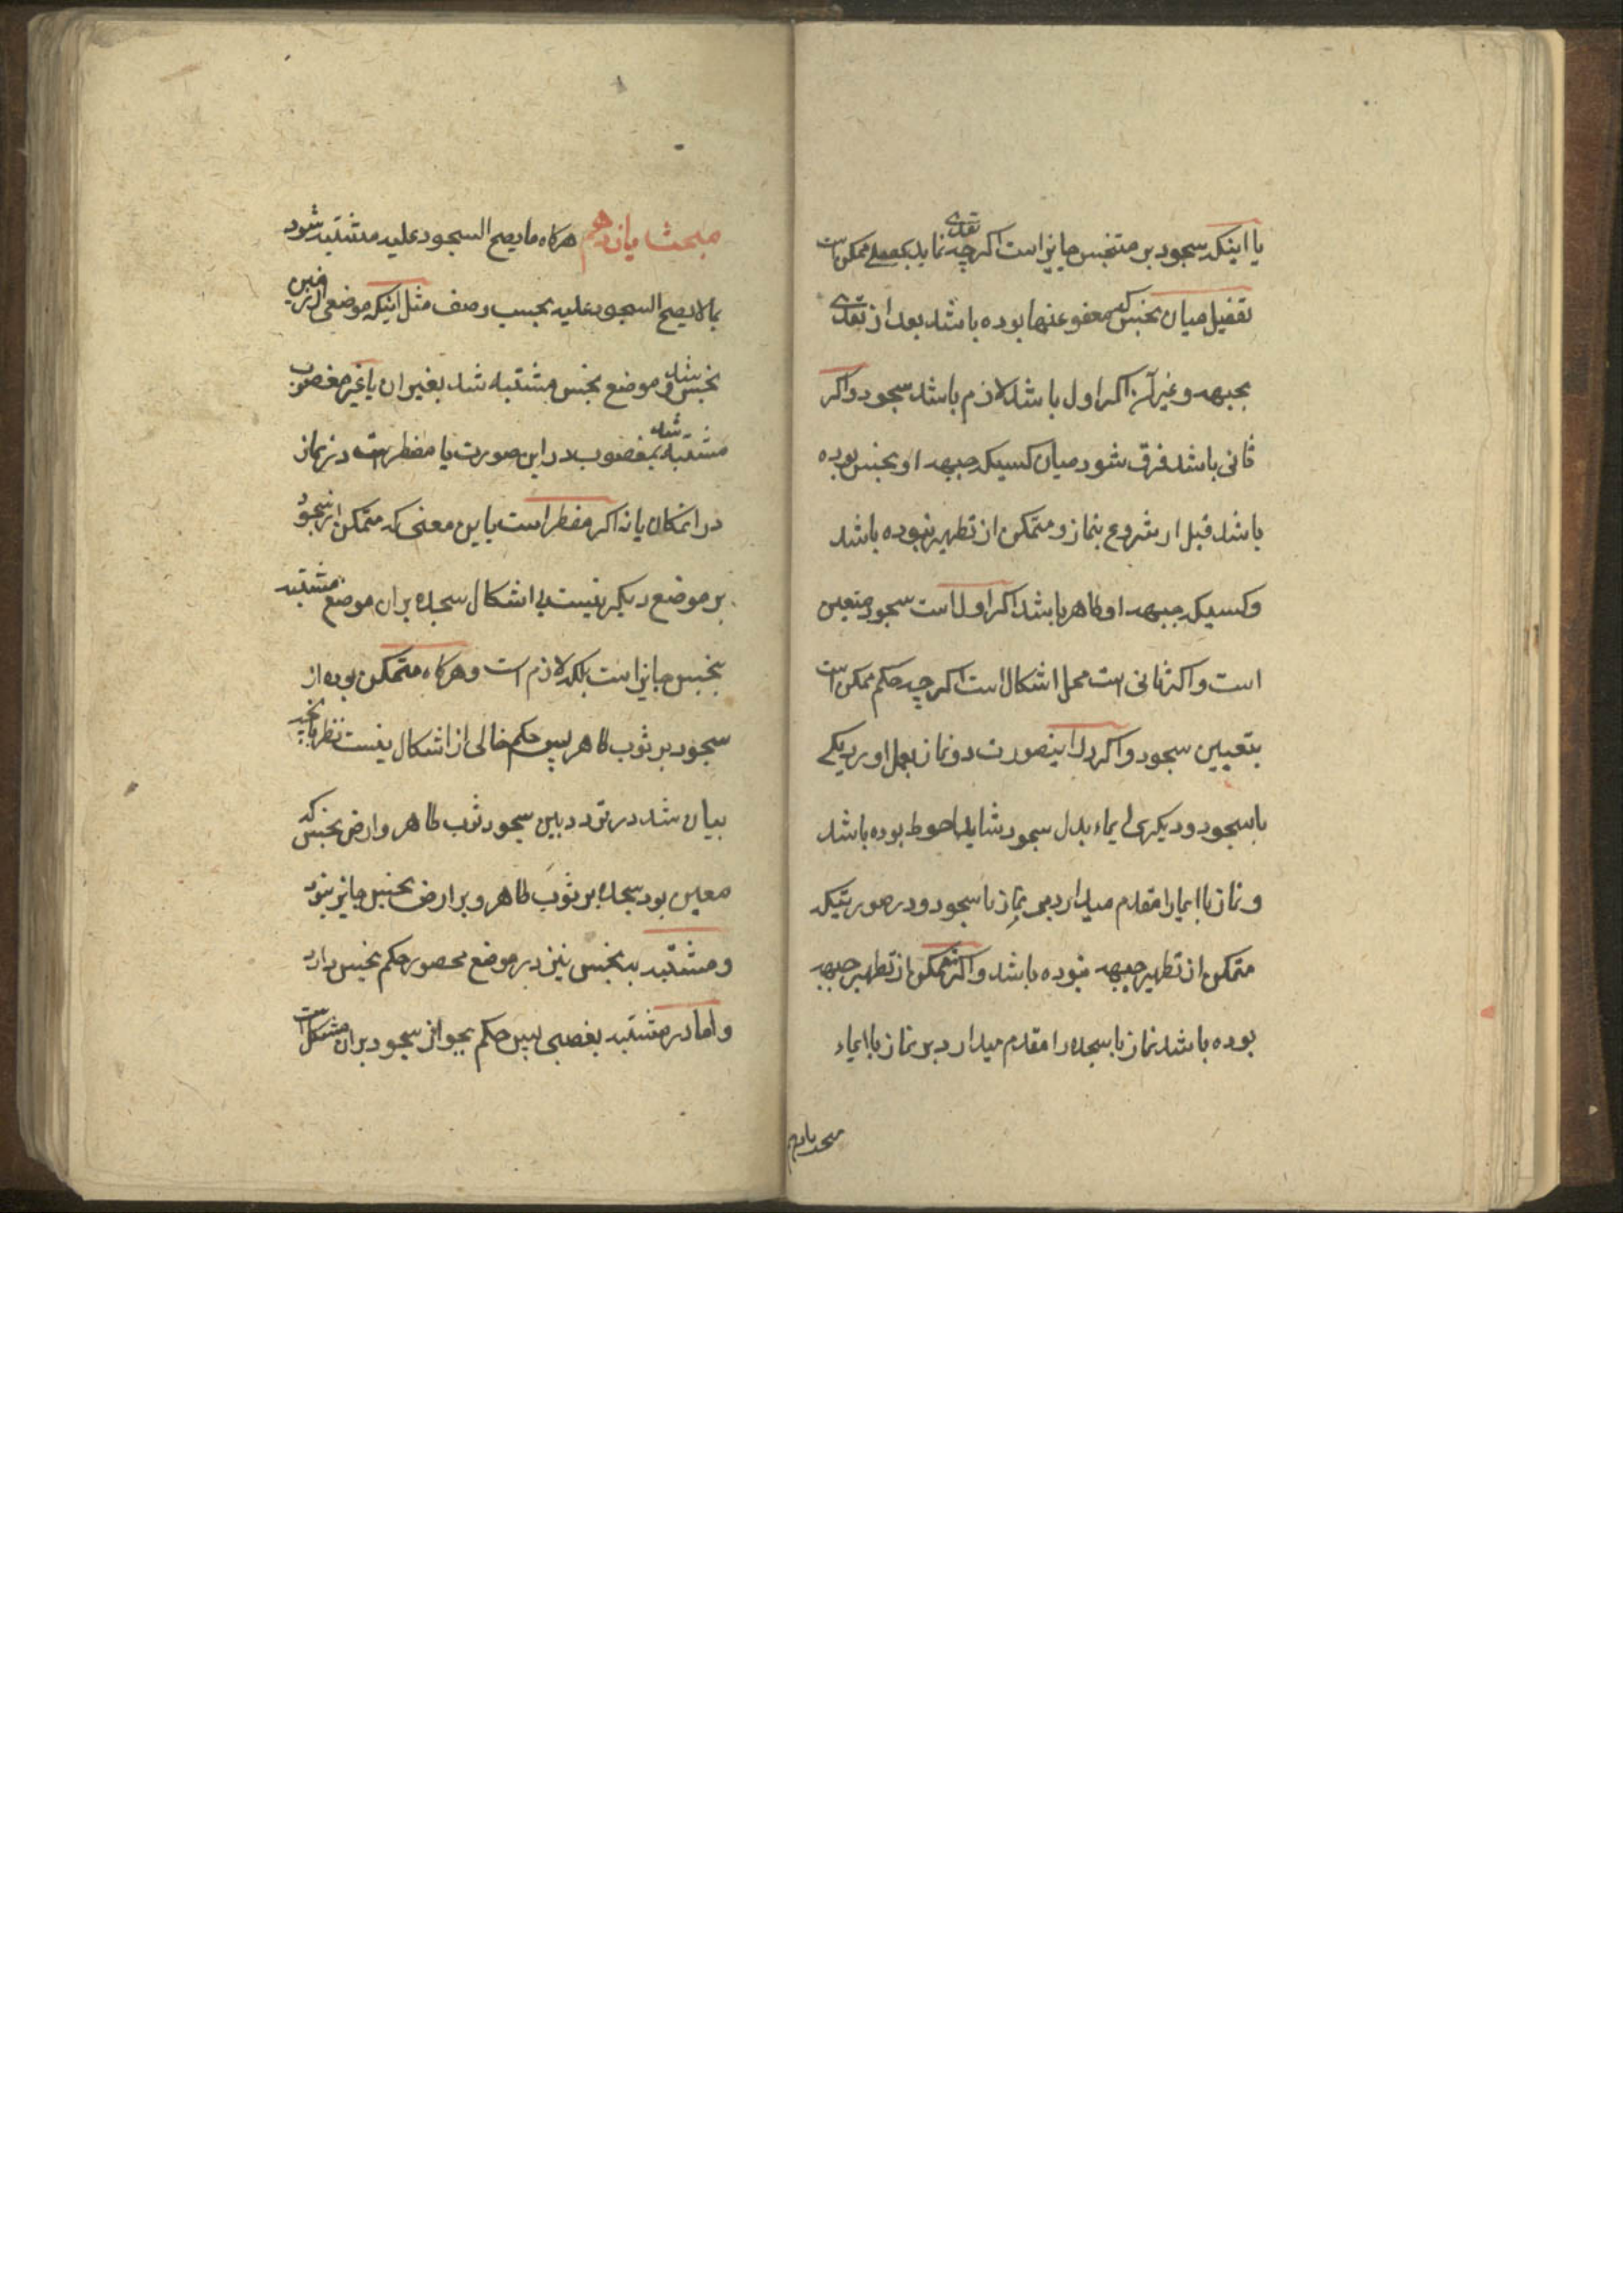 یا اینکه سجود بر متنجس جایز است اکر چه تعدی نماید بمصلی ممکن است
تفصیل میان نجس که معفو عنها بوده باشد بعد از تعدی
بجبهه و غیر آن اکر اول باشد لازم باشد سجود و اکر
ثانی باشد فرق شود میان کسیکه جبهه او نجس بوده
باشد قبل از شروع بنماز و متمکن از تطهیر نبوده باشد
و کسیکه جبهه او طاهر باشد اکر اول است سجود متعین
است و اکر ثانی است محل اشکال است اکر چه حکم ممکن است
بتعیین سجود و اکر در اینصورت دو نماز بعمل اورد یکی
با سجود و دیکری ایماء بدل سجود شاید احوط بوده باشد
و نماز با ایما را مقدم میدارد بر نماز با سجود در صورتیکه
متمکن از تطهیر جبهه نبوده باشد و اکر متمکن از تطهیر جبهه
بوده باشد نماز با سجده را مقدم میدارد بر نماز با ایماء
مبحث یازدهم
مبحث یازدهم هرکاه ما یصح السجود علیه مشتبه شود
بما لا یصح السجود علیه بحسب وصف مثل اینکه موضعی از زمین
نجس شد و موضع نجس مشتبه شد بغیر ان یا غیر مغصوب
مشتبه شد بمغصوب در این صورت یا مضطر است در نماز
در انمکان یا نه اکر مضطر است باین معنی که متمکن از سجود
بر موضع دیکر نیست بی اشکال سجده بران موضع مشتبه
بنجس جایز است بلکه لازم است و هرکاه متمکن بوده از
سجود بر ثوب طاهر پس حکم خالی از اشکال نیست نظر بانچه
بیان شد در تردد بین سجود ثوب طاهر و ارض نجس که
معین بود سجده بر ثوب طاهر و بر ارض نجس جایز نبود
و مشتبه به نجس نیز در موضع محصور حکم نجس دارد
و اما در مشتبه بغصبی پس حکم بجواز سجود بران مشکل است